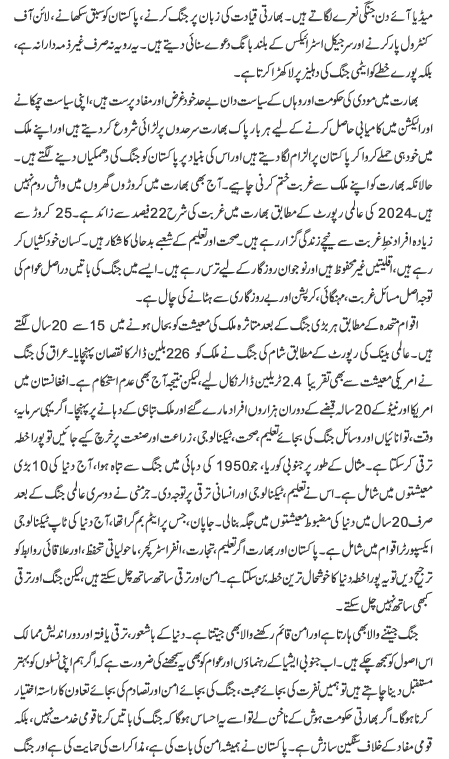 میڈیا آئے دن جنگی نعرے لگاتے ہیں۔ بھارتی قیادت کی زبان پر جنگ کرنے، پاکستان کو سبق سکھانے، لائن آف
کنٹرول پار کرنے اور سرجیکل اسٹرائیکس کے بلند بانگ دعوے سنائی دیتے ہیں۔ یہ رویہ نہ صرف غیر ذمہ دارانہ ہے،
بلکہ پورے خطے کو ایٹمی جنگ کی دہلیز پر لا کھڑا کرتا ہے۔
بھارت میں مودی کی حکومت اور وہاں کے سیاست دان بے حد خود غرض اور مفاد پرست ہیں، اپنی سیاست چمکانے
اور الیکشن میں کامیابی حاصل کرنے کے لیے ہر بار پاک بھارت سرحدوں پر لڑائی شروع کر دیتے ہیں اور اپنے ملک
میں خود ہی حملے کروا کر پاکستان پر الزام لگا دیتے ہیں اور اس کی بنیاد پر پاکستان کو جنگ کی دھمکیاں دینے لگتے ہیں۔
حالانکہ بھارت کو اپنے ملک سے غربت ختم کرنی چاہیے۔ آج بھی بھارت میں کروڑوں گھروں میں واش روم نہیں
ہیں۔ 2024 کی عالمی رپورٹ کے مطابق بھارت میں غربت کی شرح 22 فیصد سے زائد ہے۔ 25 کروڑ سے
زیادہ افراد خطِ غربت سے نیچے زندگی گزار رہے ہیں۔ صحت اور تعلیم کے شعبے بدحالی کا شکار ہیں۔ کسان خودکشیاں کر
رہے ہیں، اقلیتیں غیر محفوظ ہیں اور نوجوان روزگار کے لیے ترس رہے ہیں۔ ایسے میں جنگ کی باتیں دراصل عوام کی
توجہ اصل مسائل غربت، مہنگائی، کرپشن اور بے روزگاری سے ہٹانے کی چال ہے۔
اقوام متحدہ کے مطابق ہر بڑی جنگ کے بعد متاثرہ ملک کی معیشت کو بحال ہونے میں 15 سے 20 سال لگتے
ہیں۔ عالمی بینک کی رپورٹ کے مطابق شام کی جنگ نے ملک کو 226 بلین ڈالر کا نقصان پہنچایا۔ عراق کی جنگ
نے امریکی معیشت سے بھی تقریباً 2.4 ٹریلین ڈالر نکال لیے، لیکن نتیجہ آج بھی عدم استحکام ہے۔ افغانستان میں
امریکا اور نیٹو کے 20 سالہ قبضے کے دوران ہزاروں افراد مارے گئے اور ملک تباہی کے دہانے پر پہنچا۔ اگر یہی سرمایہ،
وقت، توانائیاں اور وسائل جنگ کی بجائے تعلیم، صحت، ٹیکنالوجی، زراعت اور صنعت پر خرچ کیے جائیں تو پورا خطہ
ترقی کر سکتا ہے۔ مثال کے طور پر جنوبی کوریا، جو 1950 کی دہائی میں جنگ سے تباہ ہوا، آج دنیا کی 10 بڑی
معیشتوں میں شامل ہے۔ اس نے تعلیم، ٹیکنالوجی اور انسانی ترقی پر توجہ دی۔ جرمنی نے دوسری عالمی جنگ کے بعد
صرف 20 سال میں دنیا کی مضبوط معیشتوں میں جگہ بنا لی۔ جاپان، جس پر ایٹم بم گرا تھا، آج دنیا کی ٹاپ ٹیکنالوجی
ایکسپورٹر اقوام میں شامل ہے۔ پاکستان اور بھارت اگر تعلیم، تجارت، انفراسٹرکچر، ماحولیاتی تحفظ، اور علاقائی روابط کو
ترجیح دیں تو یہ پورا خطہ دنیا کا خوشحال ترین خطہ بن سکتا ہے۔ امن اور ترقی ساتھ ساتھ چل سکتے ہیں، لیکن جنگ اور ترقی
کبھی ساتھ نہیں چل سکتے۔
جنگ جیتنے والا بھی ہارتا ہے اور امن قائم رکھنے والا بھی جیتتا ہے۔ دنیا کے باشعور، ترقی یافتہ اور دور اندیش ممالک
اس اصول کو سمجھ چکے ہیں۔ اب جنوبی ایشیا کے رہنماؤں اور عوام کو بھی یہ سمجھنے کی ضرورت ہے کہ اگر ہم اپنی نسلوں کو بہتر
مستقبل دینا چاہتے ہیں تو ہمیں نفرت کی بجائے محبت، جنگ کی بجائے امن اور تصادم کی بجائے تعاون کا راستہ اختیار
کرنا ہوگا۔ اگر بھارتی حکومت ہوش کے ناخن لے تو اسے یہ احساس ہوگا کہ جنگ کی باتیں کرنا قومی خدمت نہیں، بلکہ
قومی مفاد کے خلاف سنگین سازش ہے۔ پاکستان نے ہمیشہ امن کی بات کی ہے، مذاکرات کی حمایت کی ہے اور جنگ